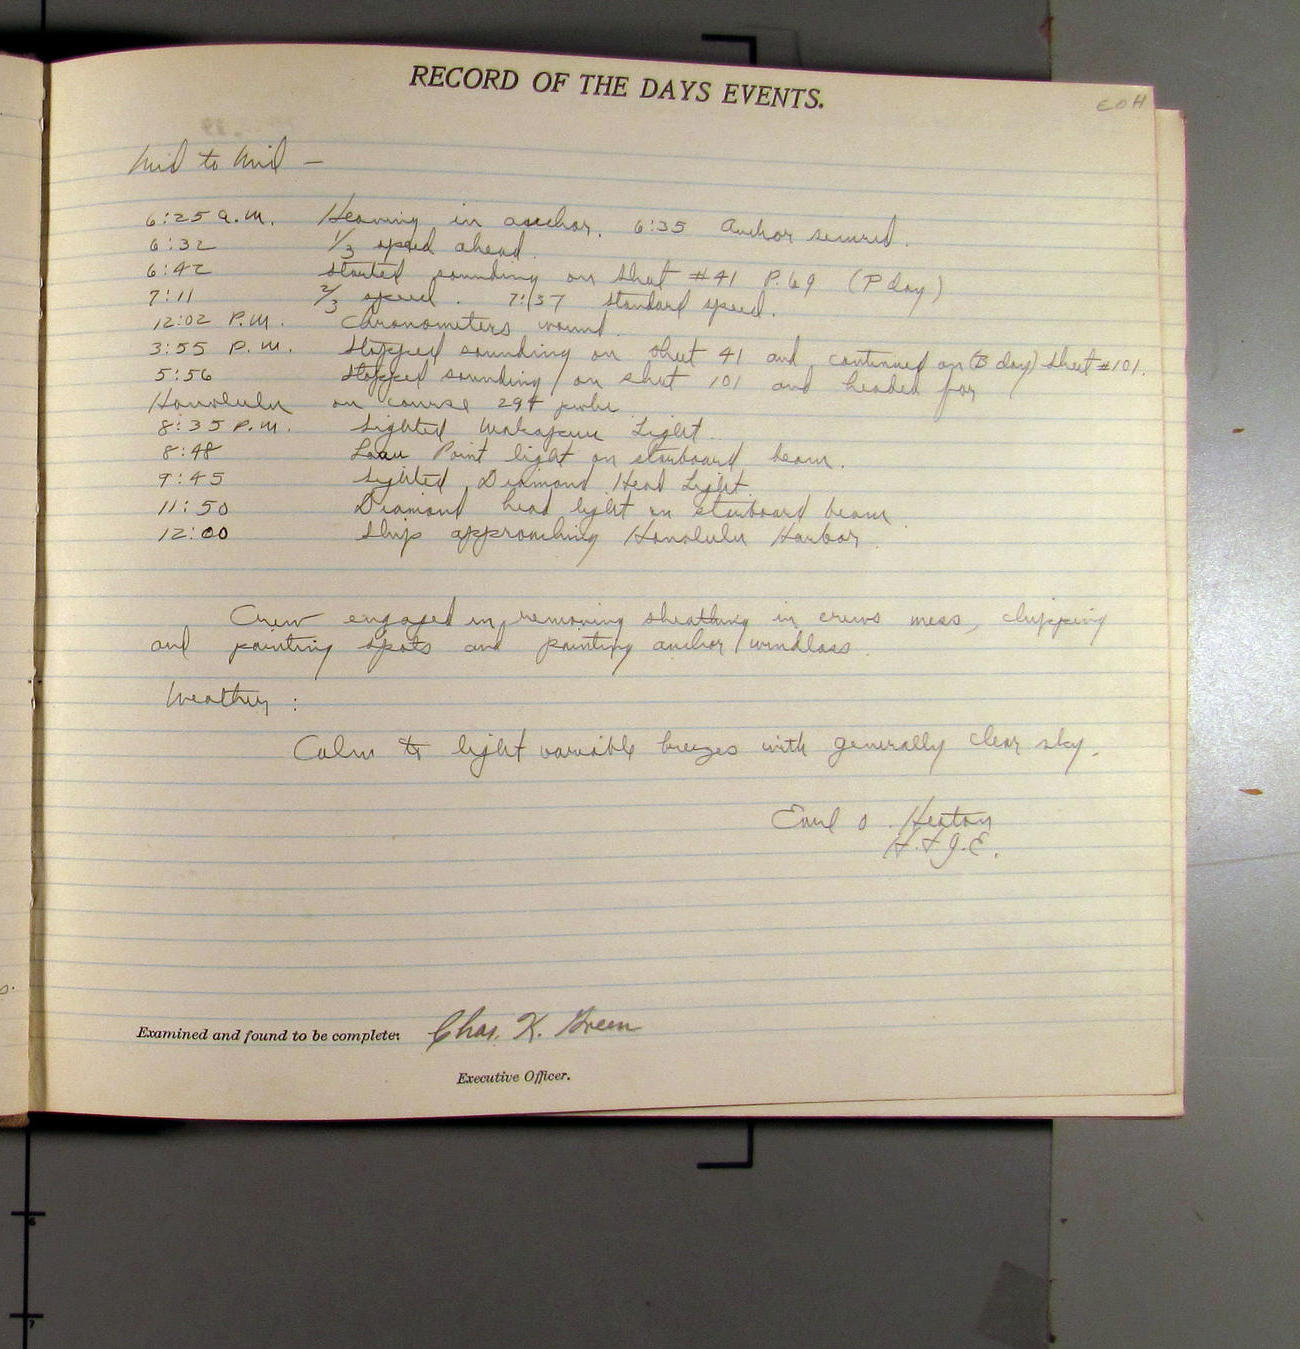 RECORD OF THE DAYS EVENTS.
EOH
Mid to Mid —
6:25 a.m. Heaving in anchor. 6:35 Anchor secured.
6:32 1/3 speed ahead.
6:42 Started sounding on sheet #41 P.69 (P day)
7:11 2/3 speed. 7:37 standard speed.
12:02 P.M. Chronometers wound.
3:55 P.M. Stopped sounding on sheet 41 and continued on (B day) sheet #101.
5:56 Stopped sounding on sheet 101 and headed for
Honolulu on course 294
8:35 P.M. Sighted Makapuu Light.
8:48 Laau Point light on starboard beam.
9:45 Sighted Diamond Head Light.
11:50 Diamond head light on starboard beam
12:00 Ship approaching Honolulu Harbor.
Crew engaged in removing sheathing in crews mess, chipping
and painting spots and painting anchor windlass.
Weather:
Calm to light variable breezes with generally clear sky.
Earl O. Heaton
H.&G.E.
Examined and found to be complete: Chas. K. Green
Executive Officer.
s.
6
7